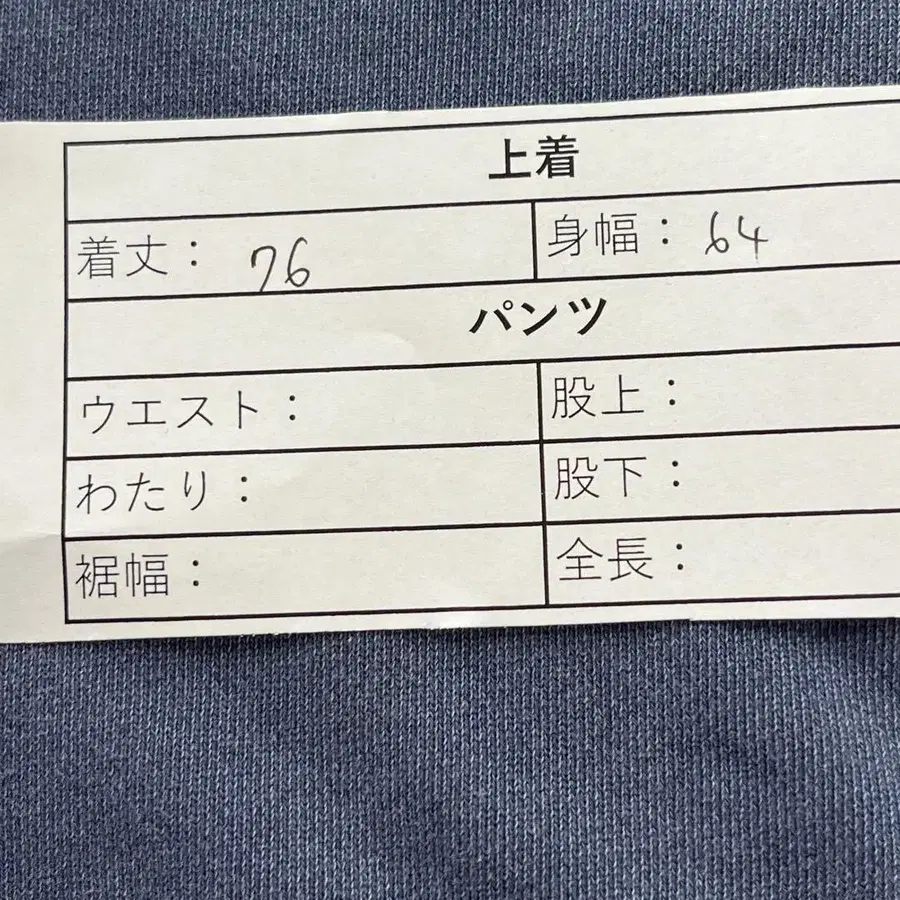 上着
着丈： 76 身幅： 64
パンツ
ウエスト： 股上：
わたり： 股下：
裾幅： 全長：